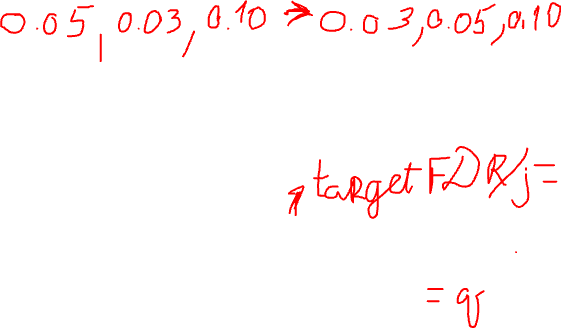 0.05, 0.03, 0.10 → 0.03, 0.05, 0.10
target FDR/j =
= q